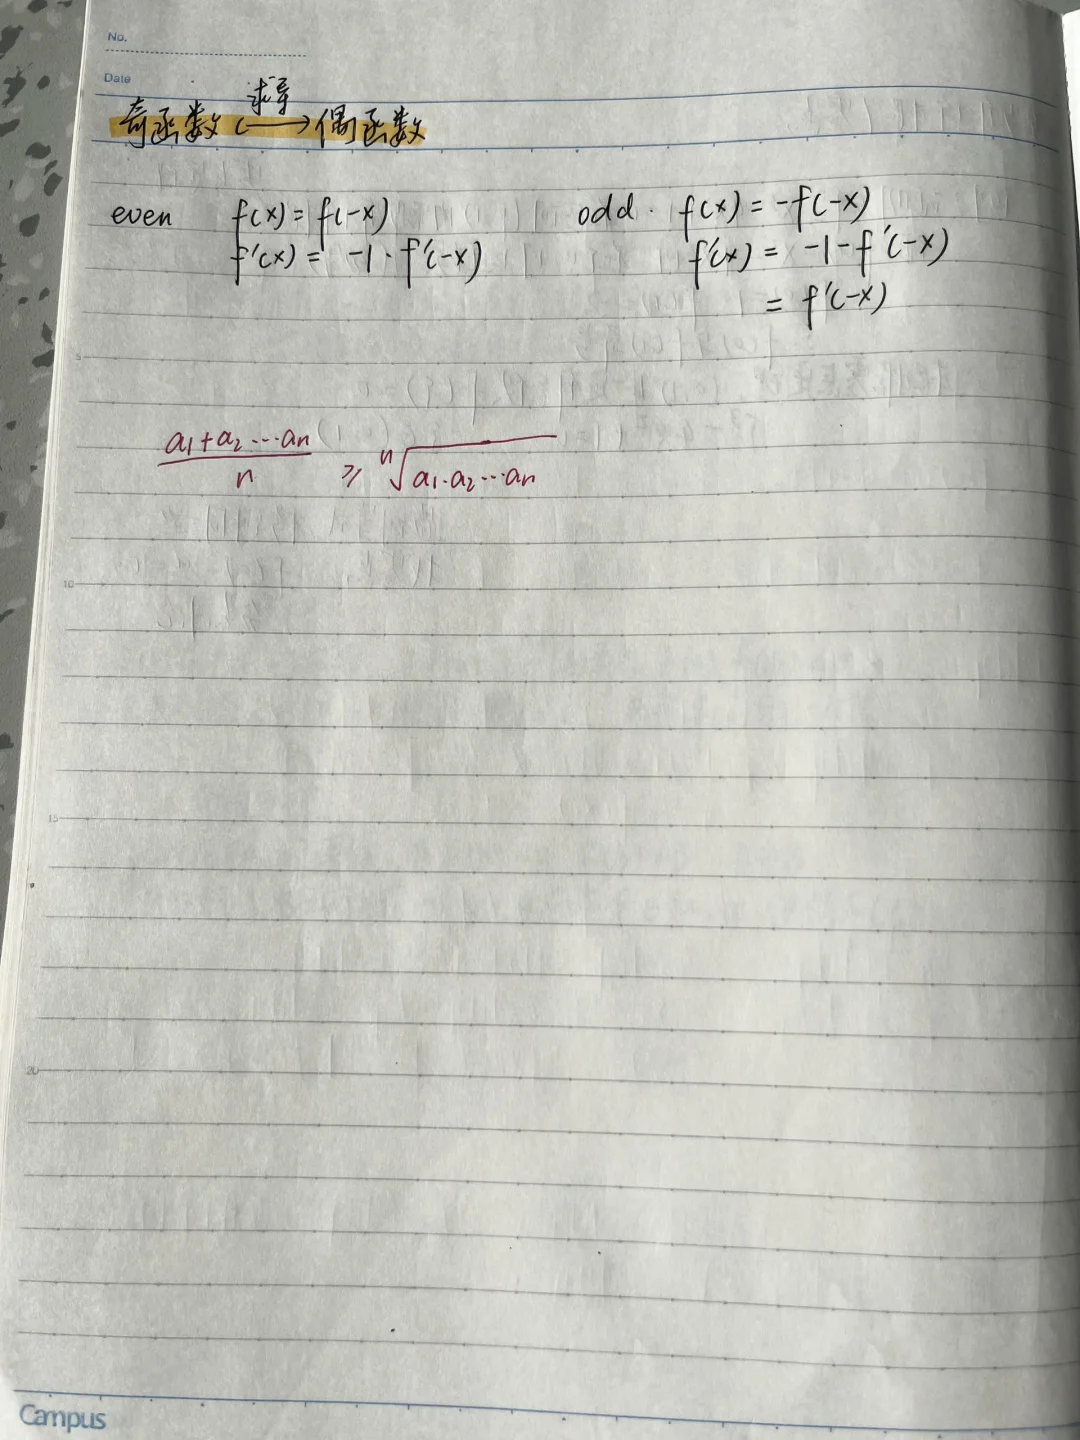 No.
Date
求导
奇函数 ⟷ 偶函数
even f(x) = f(-x) odd. f(x) = -f(-x)
f'(x) = -1 · f'(-x) f'(x) = -1 - f'(-x)
= f'(-x)
5
a₁+a₂···aₙ / n ≥ ⁿ√a₁·a₂···aₙ
10
15
20
Campus